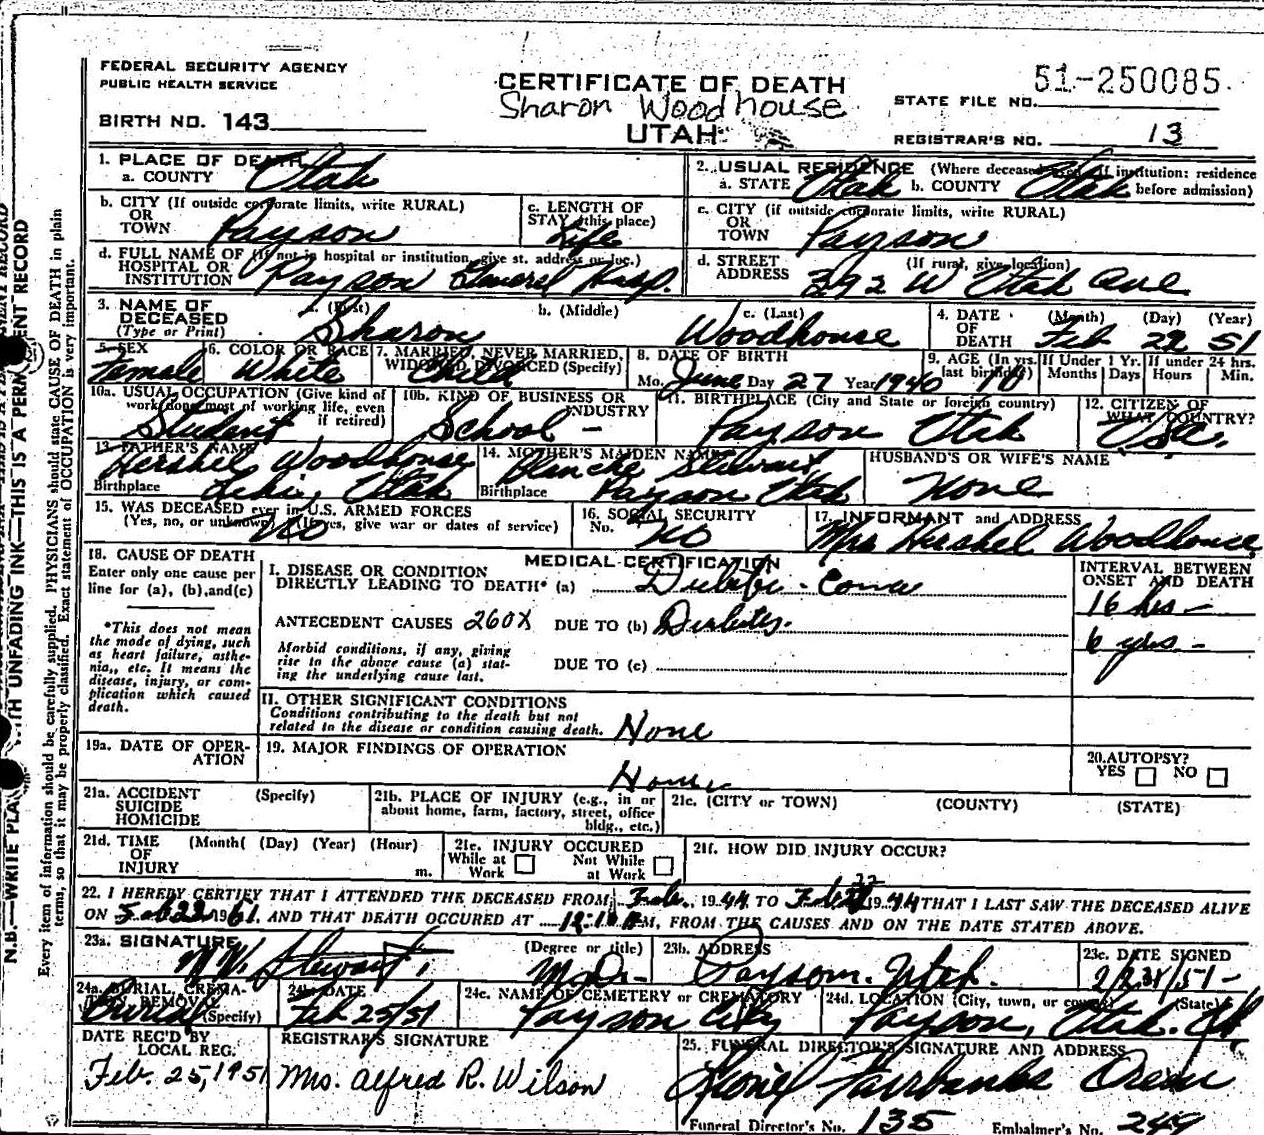 FEDERAL SECURITY AGENCY
PUBLIC HEALTH SERVICE
CERTIFICATE OF DEATH
51-250085
STATE FILE NO.
Sharon Woodhouse
BIRTH NO. 143
UTAH
REGISTRAR'S NO. 13
1. PLACE OF DEATH
a. COUNTY Utah
2. USUAL RESIDENCE (Where deceased If institution: residence before admission)
a. STATE Utah b. COUNTY Utah
b. CITY (If outside corporate limits, write RURAL)
OR
TOWN Payson
c. LENGTH OF STAY (this place)
Life
c. CITY (if outside corporate limits, write RURAL)
OR
TOWN Payson
d. FULL NAME OF (If not in hospital or institution, give st. address or loc.)
HOSPITAL OR
INSTITUTION Payson General Hosp.
d. STREET (If rural, give location)
ADDRESS 392 W Utah Ave
3. NAME OF DECEASED
(Type or Print)
a. (First) b. (Middle) c. (Last)
Sharon Woodhouse
4. DATE OF DEATH (Month) (Day) (Year)
Feb 22 51
5. SEX
Female
6. COLOR OR RACE
White
7. MARRIED, NEVER MARRIED, WIDOWED, DIVORCED (Specify)
Child
8. DATE OF BIRTH
Mo. June Day 27 Year 1940
9. AGE (In yrs. last birthday) 10
If Under 1 Yr. Months Days
If under 24 hrs. Hours Min.
10a. USUAL OCCUPATION (Give kind of work done most of working life, even if retired)
Student
10b. KIND OF BUSINESS OR INDUSTRY
School -
11. BIRTHPLACE (City and State or foreign country)
Payson Utah
12. CITIZEN OF WHAT COUNTRY?
13. FATHER'S NAME
Hershel Woodhouse
Birthplace Lehi, Utah
14. MOTHER'S MAIDEN NAME
Blanche Stewart
Birthplace Payson Utah
HUSBAND'S OR WIFE'S NAME
None
15. WAS DECEASED ever in U.S. ARMED FORCES
(Yes, no, or unknown) (If yes, give war or dates of service)
No
16. SOCIAL SECURITY
No. No
17. INFORMANT and ADDRESS
Mrs Hershel Woodhouse
18. CAUSE OF DEATH
Enter only one cause per line for (a), (b), and (c)
*This does not mean the mode of dying, such as heart failure, asthenia,, etc. It means the disease, injury, or complication which caused death.
MEDICAL CERTIFICATION
I. DISEASE OR CONDITION
DIRECTLY LEADING TO DEATH* (a) Coma
ANTECEDENT CAUSES 260X DUE TO (b) Diabetes.
Morbid conditions, if any, giving rise to the above cause (a) stating the underlying cause last.
DUE TO (c)
INTERVAL BETWEEN ONSET AND DEATH
16 hrs -
6 yrs -
II. OTHER SIGNIFICANT CONDITIONS
Conditions contributing to the death but not
related to the disease or condition causing death. None
19a. DATE OF OPERATION
19. MAJOR FINDINGS OF OPERATION
None
20. AUTOPSY?
YES NO
21a. ACCIDENT (Specify)
SUICIDE
HOMICIDE
21b. PLACE OF INJURY (e.g., in or about home, farm, factory, street, office bldg., etc.)
21c. (CITY or TOWN) (COUNTY) (STATE)
21d. TIME OF INJURY (Month( (Day) (Year) (Hour)
m.
21e. INJURY OCCURED
While at Work Not While at Work
21f. HOW DID INJURY OCCUR?
22. I HEREBY CERTIFY THAT I ATTENDED THE DECEASED FROM Feb., 1944 TO Feb 22 1944 THAT I LAST SAW THE DECEASED ALIVE
ON Feb 22 1961. AND THAT DEATH OCCURED AT M, FROM THE CAUSES AND ON THE DATE STATED ABOVE.
23a. SIGNATURE (Degree or title)
Stewart, M.D.
23b. ADDRESS
Payson. Utah.
23c. DATE SIGNED
24a. BURIAL, CREMATION, REMOVAL (Specify)
Burial
24b. DATE
Feb 25/51
24c. NAME OF CEMETERY or CREMATORY
Payson City
24d. LOCATION (City, town, or county) (State)
Payson, Utah.
DATE REC'D BY LOCAL REG.
Feb. 25, 1951
REGISTRAR'S SIGNATURE
Mrs. Alfred R. Wilson
25. FUNERAL DIRECTOR'S SIGNATURE AND ADDRESS
Fairbanks Orem
Funeral Director's No. 135 Embalmer's No. 249
UNFADING INK—THIS IS A PERMANENT RECORD
Every item of information should be carefully supplied. PHYSICIANS should state CAUSE OF DEATH in plain
terms, so that it may be properly classified. Exact statement of OCCUPATION is very important.